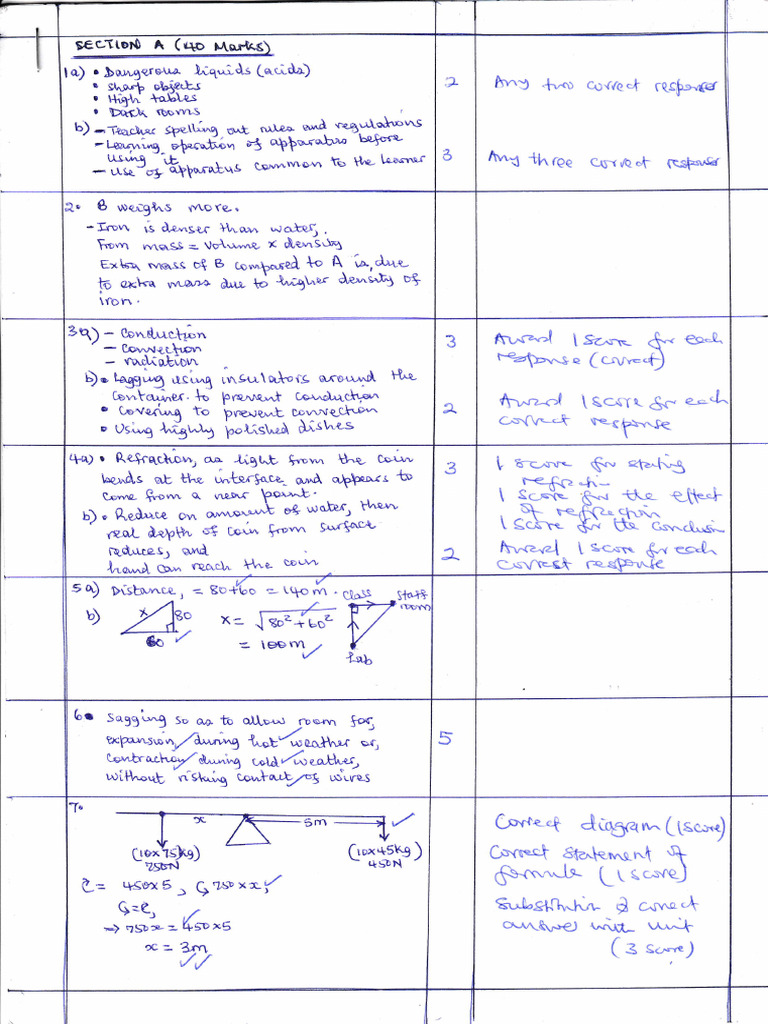 SECTION A (40 Marks)
1a) • Dangerous liquids (acids)
• sharp objects
• High tables
• Dark rooms
2 Any two correct responses
b) – Teacher spelling out rules and regulations
– Learning operation of apparatus before
using it
– Use of apparatus common to the learner
3 Any three correct response
2• B weighs more.
– Iron is denser than water,.
From mass = Volume × density
Extra mass of B compared to A is, due
to extra mass due to higher density of
iron.
3a) – Conduction
– convection
– radiation
3 Award 1 score for each
response (correct)
b) • Lagging using insulators around the
container. to prevent conduction
• Covering to prevent convection
• Using highly polished dishes
2 Award 1 score for each
correct response
4a) • Refraction, as light from the coin
bends at the interface and appears to
come from a near point.
3 1 score for stating
refraction
1 score for the effect
of refraction
1 score for the conclusion
b) • Reduce on amount of water, then
real depth of coin from surface
reduces, and
hand can reach the coin
2 Award 1 score for each
correct response
5a) Distance, = 80+60 = 140m.
b) x 80
60
x = √80² + 60²
= 100m
Class Staff
room
Lab
6• Sagging so as to allow room for,
expansion, during hot weather or,
contraction, during cold weather,
without risking contact of wires
5
7.
x 5m
(10×75kg) (10×45kg)
750N 450N
= 450×5, 750×x,
→ 750x = 450×5
x = 3m
Correct diagram (1score)
Correct statement of
formule (1 score)
Substitution & correct
answer with unit
(3 score)